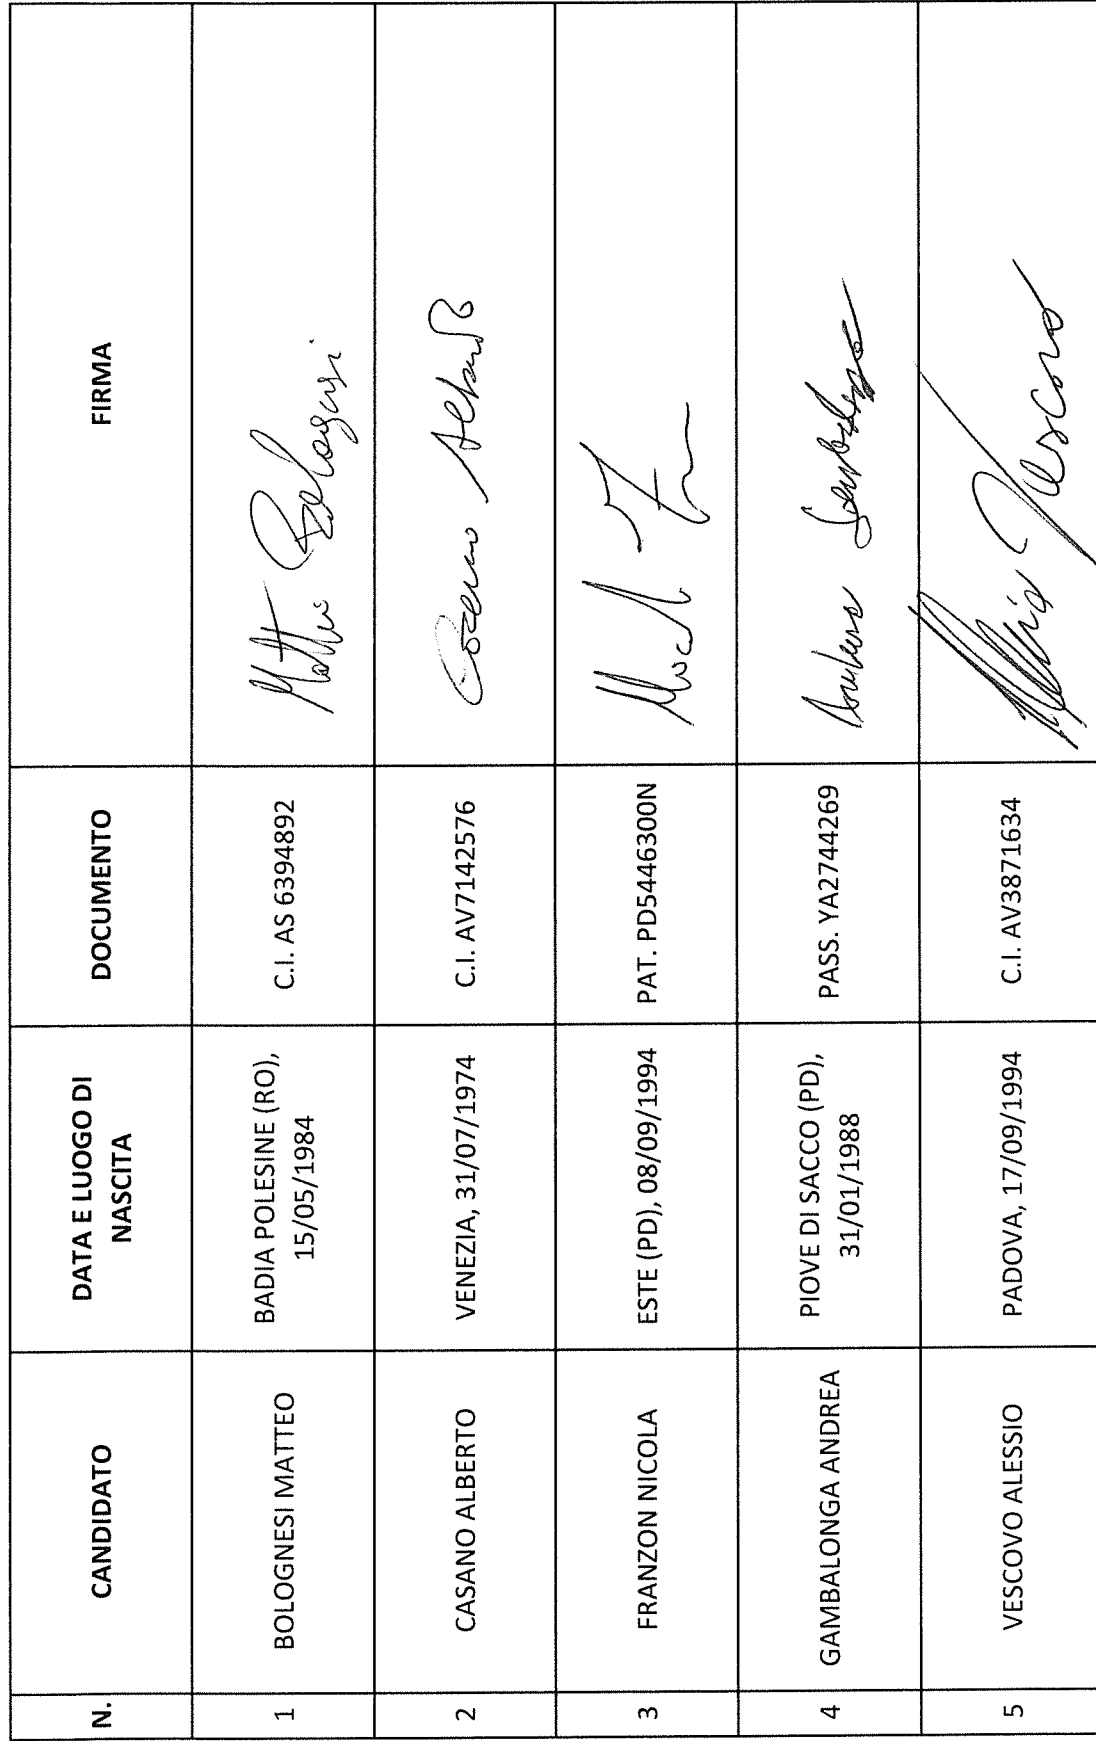 N. CANDIDATO DATA E LUOGO DI NASCITA DOCUMENTO FIRMA
1 BOLOGNESI MATTEO BADIA POLESINE (RO), 15/05/1984 C.I. AS 6394892 Matteo Bolognesi
2 CASANO ALBERTO VENEZIA, 31/07/1974 C.I. AV7142576 Casano Alberto
3 FRANZON NICOLA ESTE (PD), 08/09/1994 PAT. PD5446300N
4 GAMBALONGA ANDREA PIOVE DI SACCO (PD), 31/01/1988 PASS. YA2744269
5 VESCOVO ALESSIO PADOVA, 17/09/1994 C.I. AV3871634 Vescovo